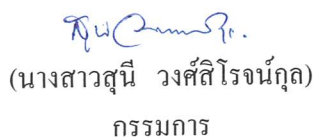 (นางสาวสุนี วงศ์สิโรจน์กุล)
กรรมการ